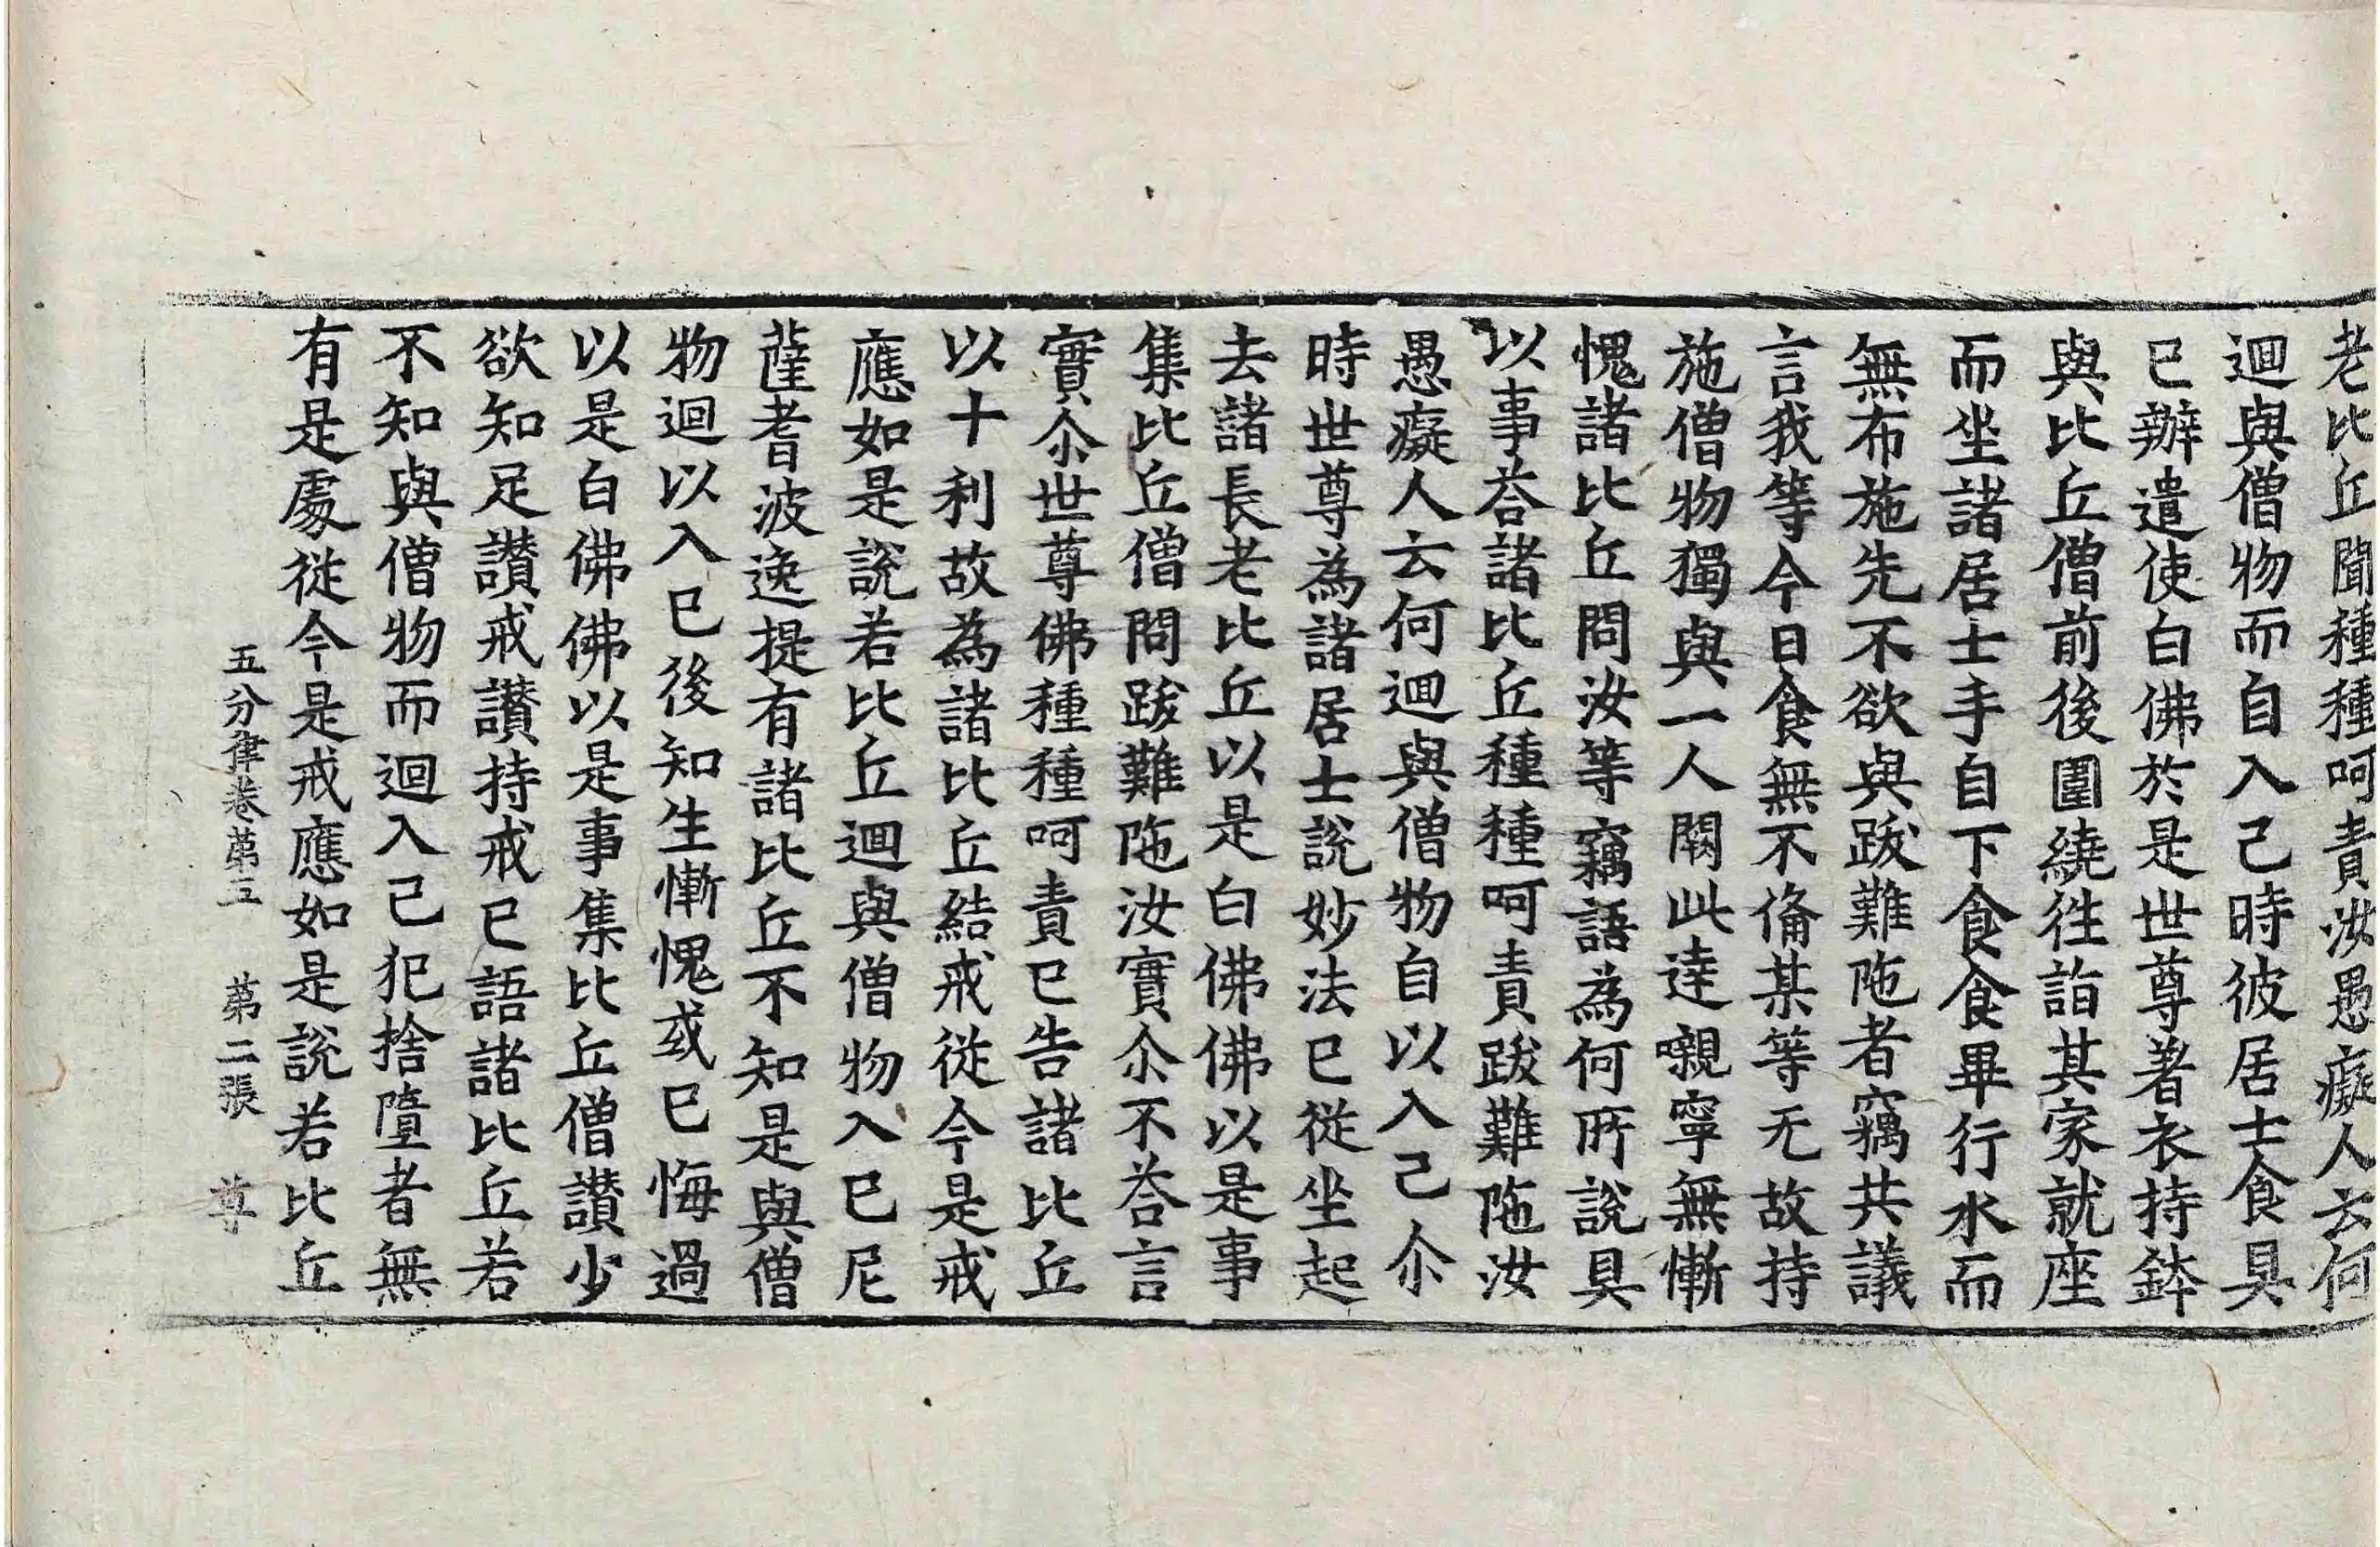 老比丘聞種種呵責汝愚癡人云何
迴與僧物而自入己時彼居士食具
已辦遣使白佛於是世尊著衣持鉢
與比丘僧前後圍繞往詣其家就座
而坐諸居士手自下食食畢行水而
無布施先不欲與跋難陁者竊共議
言我等今日食無不俻某等无故持
施僧物獨與一人闕此達嚫寧無慚
愧諸比丘問汝等竊語為何所說具
以事荅諸比丘種種呵責跋難陁汝
愚癡人云何迴與僧物自以入己尒
時世尊為諸居士說妙法已從坐起
去諸長老比丘以是白佛佛以是事
集比丘僧問跋難陁汝實尒不荅言
實尒世尊佛種種呵責已告諸比丘
以十利故為諸比丘結戒從今是戒
應如是說若比丘迴與僧物入已尼
薩耆波逸提有諸比丘不知是與僧
物迴以入已後知生慚愧或已悔過
以是白佛佛以是事集比丘僧讃少
欲知足讃戒讃持戒已語諸比丘若
不知與僧物而迴入己犯捨墮者無
有是處從今是戒應如是說若比丘
五分律卷第五 第二張 尊